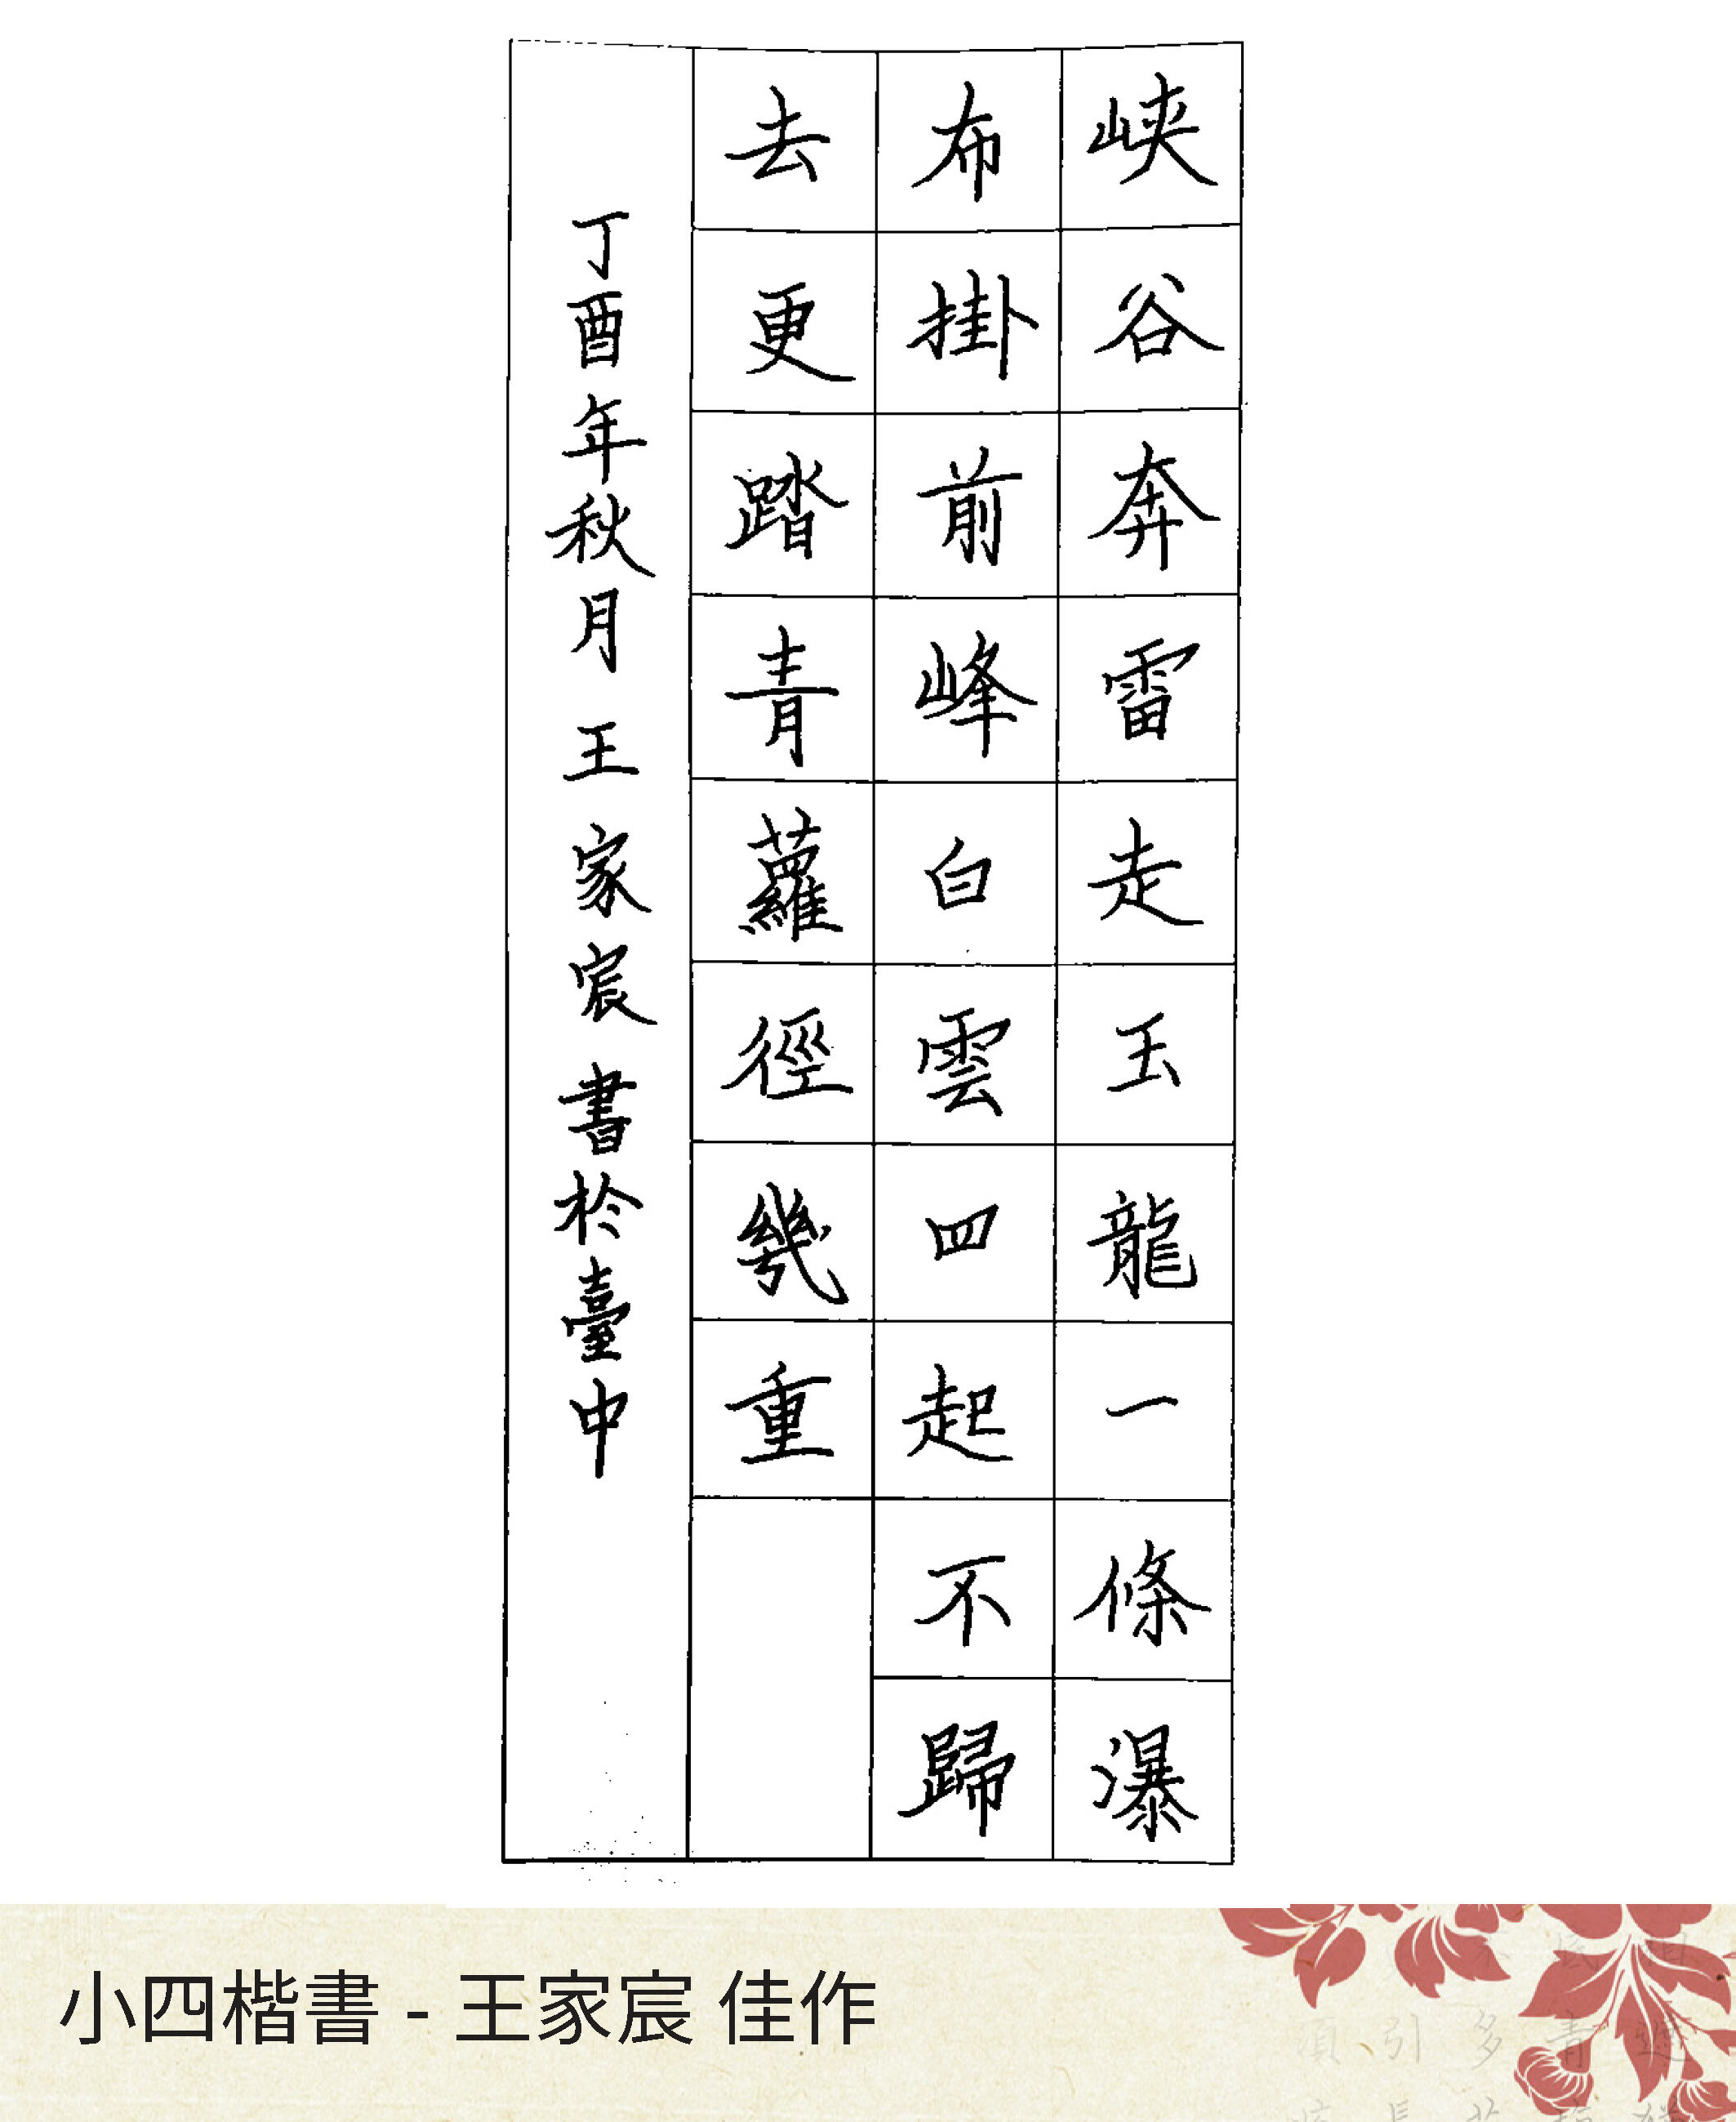 峽谷奔雷走玉龍一條瀑
布掛前峰白雲四起不歸
去更踏青蘿徑幾重
丁酉年秋月 王家宸 書於臺中
小四楷書 - 王家宸 佳作